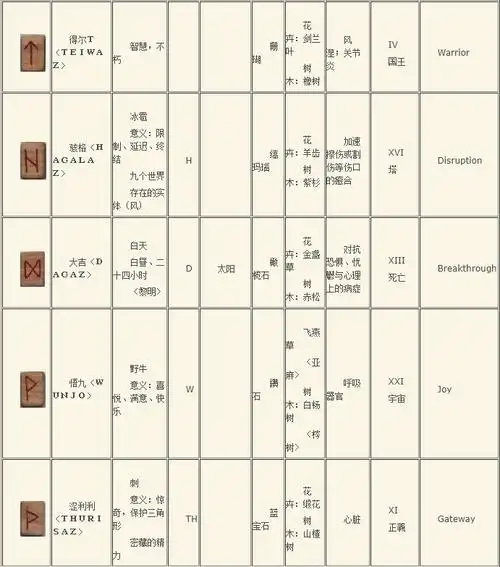 得尔T
〈TEIWA
Z〉
智慧，不
朽
瑚
花
卉：剑兰
叶
树
木：橡树
风
湿；关节
炎
IV
国王
Warrior
骇格〈H
AGALA
Z〉
冰雹
意义：限
制、延迟、终
结
九个世界
存在的实
体（风）
H
缟
玛瑙
花
卉：羊齿
树
木：紫杉
加速
擦伤或割
伤等伤口
的癒合
XVI
塔
Disruption
大吉〈D
AGAZ〉
白天
白昼、二
十四小时
〈黎明〉
D
太阳
橄
榄石
花
卉：金盏
草
树
木：赤松
对抗
恐惧、忧
鬱与心理
上的病症
XIII
死亡
Breakthrough
悟九〈W
UNJO〉
野牛
意义：喜
悦、满意、快
乐
W
鑽
石
飞燕
草
〈亚
麻〉
树
木：白杨
树
〈梣
树〉
呼吸
器官
XXI
宇宙
Joy
涩利利
〈THURI
SAZ〉
刺
意义：惊
奇，保护三角
形
密藏的精
力
TH
蓝
宝石
花
卉：缎花
树
木：山楂
树
心脏
XI
正義
Gateway